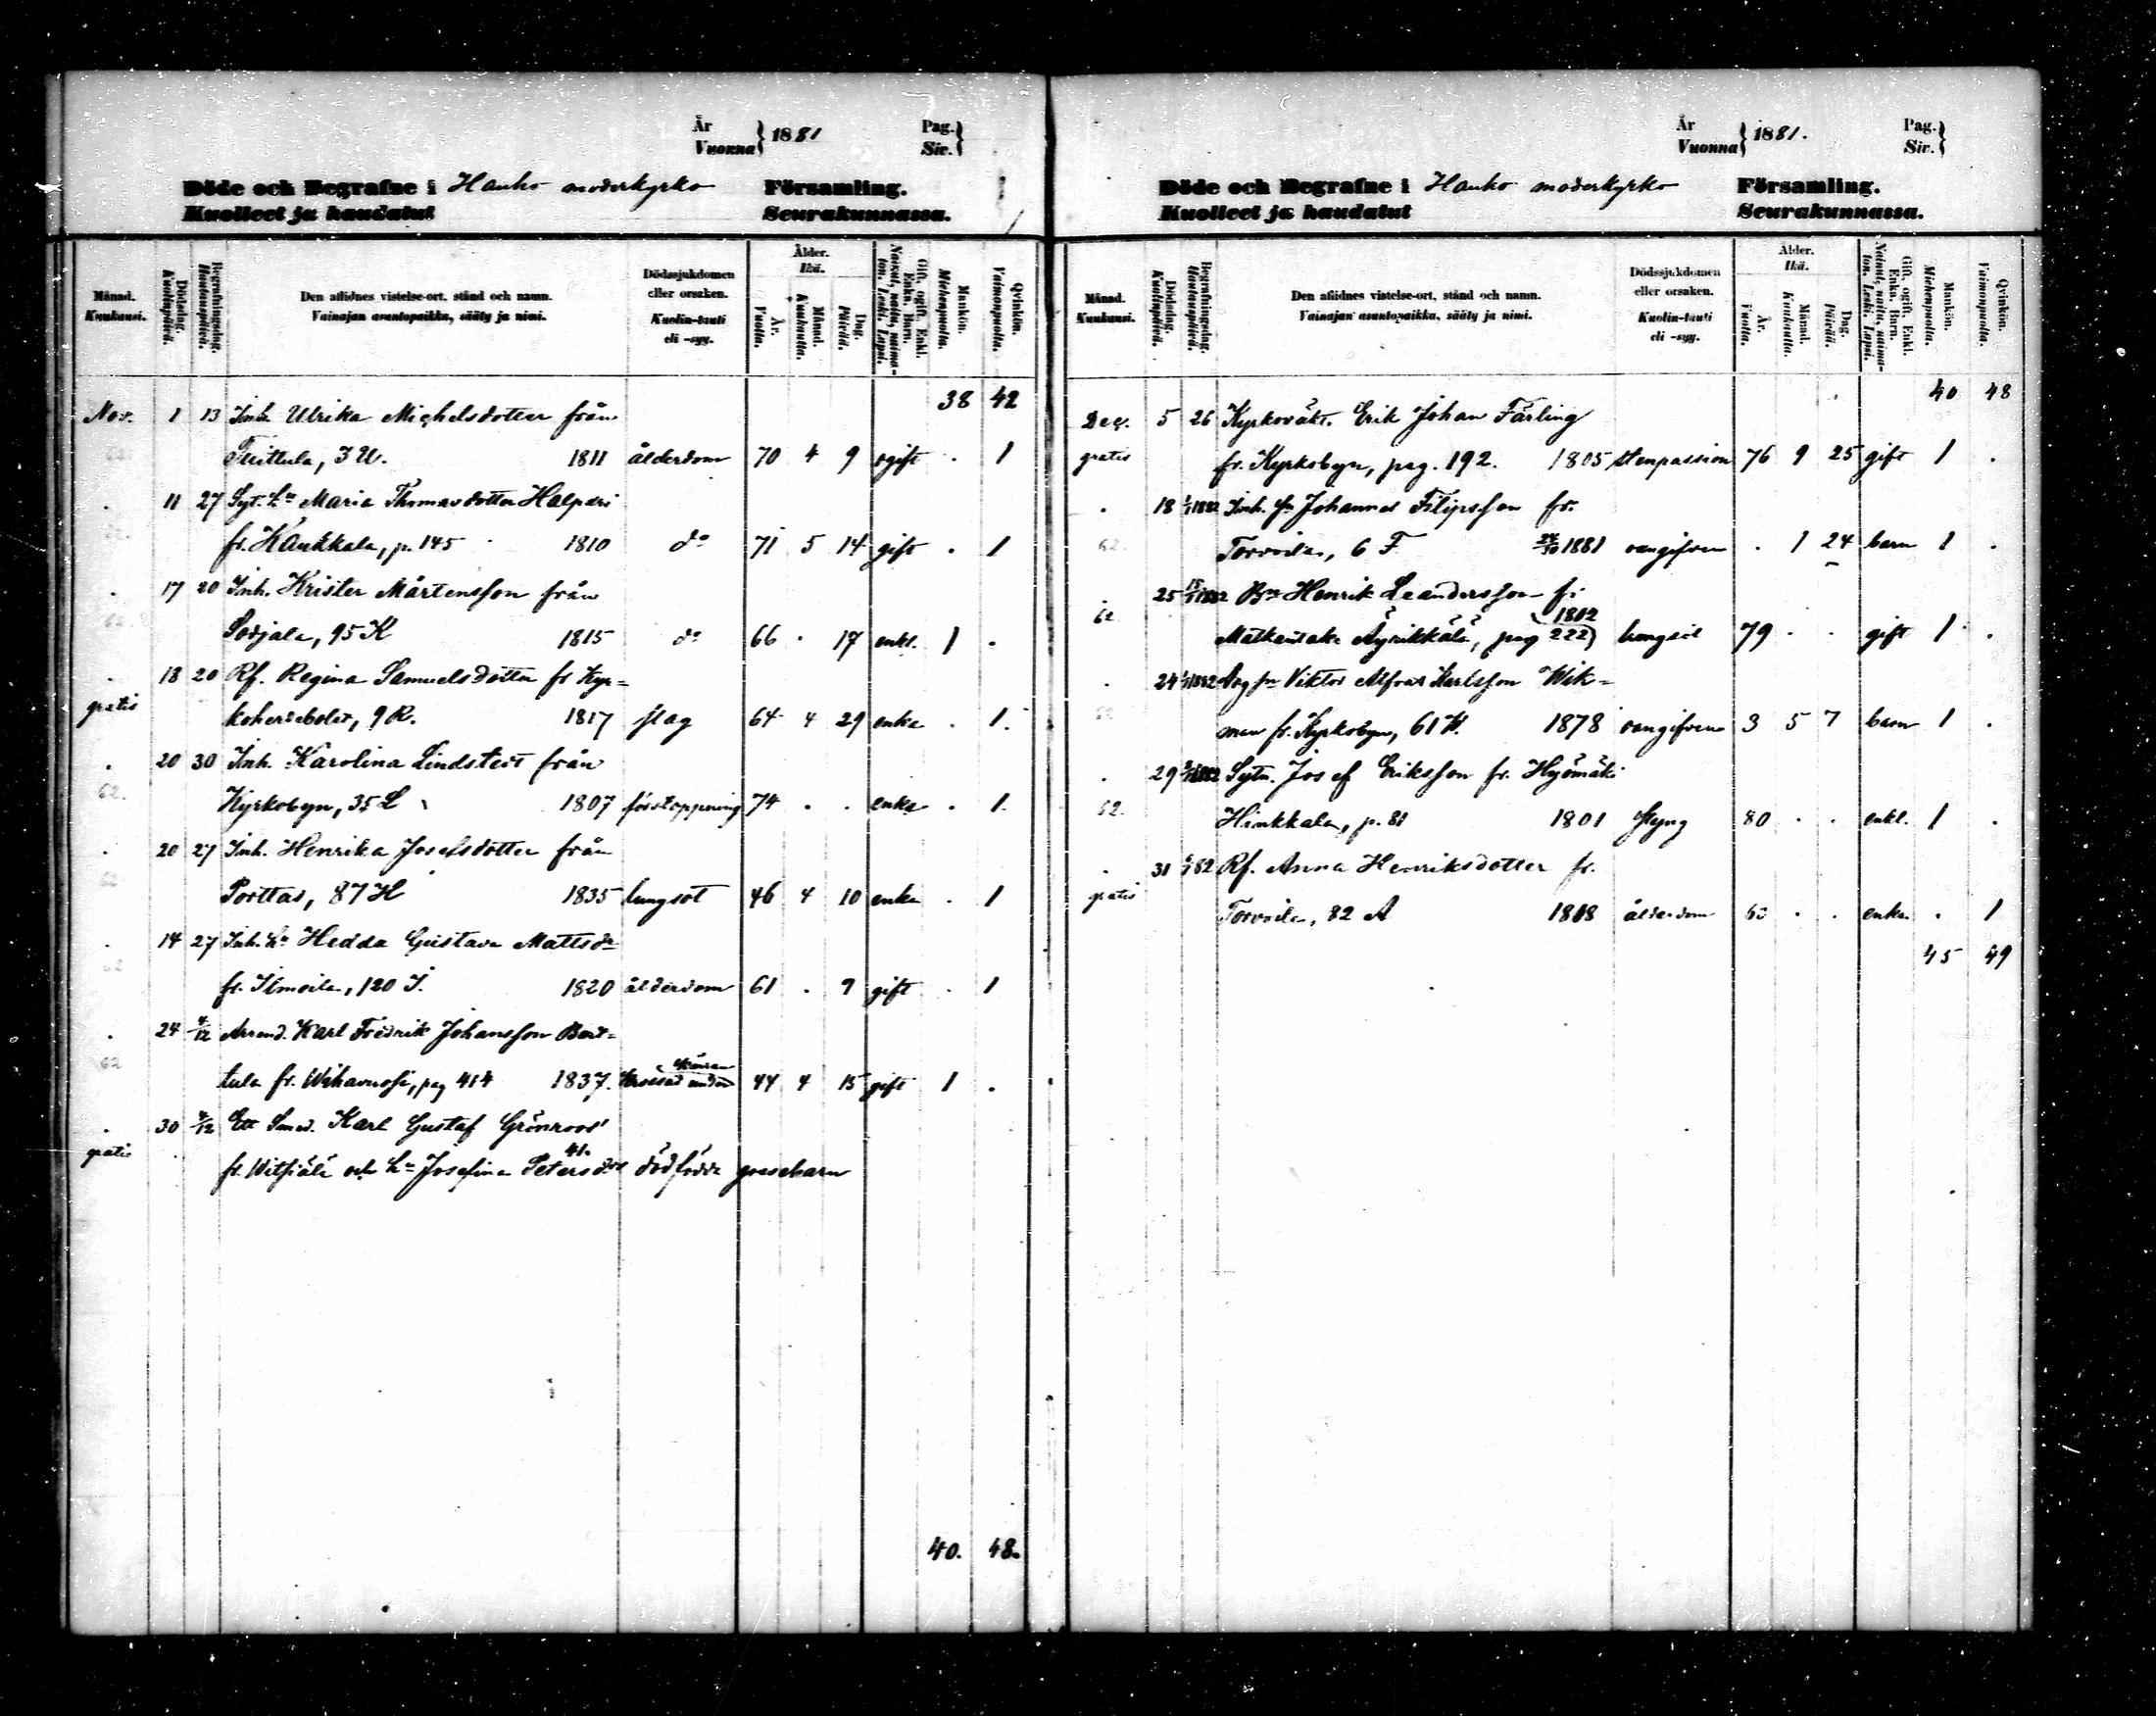 År
Vuonna } 1881
Pag.
Siv. }
Döde och Begrafne i Hauho moderkyrko Församling.
Kuolleet ja haudatut Seurakunnassa.
Månad.
Kuukausi.
Dödsdag.
Kuolinpäivä.
Begrafningsdag.
Hautauspäivä.
Den aflidnes vistelse-ort, stånd och namn.
Vainajan asuntopaikka, sääty ja nimi.
Dödssjukdomen
eller orsaken.
Kuolin-tauti
eli -syy.
Ålder.
Ikä.
År.
Vuotta.
Månad.
Kuukautta.
Dag.
Päivää.
Gift, ogift, Enkl.
Enka, Barn.
Nainut, naitu, naima-
ton. Leski. Lapsi.
Mankön.
Miehenpuolta.
Qvinkön.
Vaimonpuolta.
38 42
Nov. 1 13 Inh. Ulrika Michelsdotter från
Teittula, 3 U. 1811 ålderdom 70 4 9 ogift . 1
. 11 27 Syt. Hu Maria Thomasdotter Halpari
fr. Kaukkala, p. 145 1810 do 71 5 14 gift . 1
. 17 20 Inh. Krister Mårtensson från
Sorjala, 95 K 1815 do 66 . 17 enkl. 1 .
. 18 20 Rf. Regina Samuelsdotter fr Kyr=
gratis koherdebolet, 9 R. 1817 slag 64 4 29 enka . 1.
. 20 30 Inh. Karolina Lindstedt från
62. Kyrkobyn, 35 L 1807 förstoppning 74 . . enka . 1.
. 20 27 Inh. Henrika Josefsdotter från
62 Porttas, 87 H 1835 lungsot 46 4 10 enka . 1
. 14 27 Inh. Hu Hedda Gustava Mattsdr
62 fr. Ilmoila, 120 I. 1820 ålderdom 61 . 9 gift . 1
. 24 4/12 Arrend. Karl Fredrik Johansson Bert=
62 tula fr. Wihavuosi, pag 414 1837. 44 4 15 gift 1 .
. 30 4/12 Ett Smed. Karl Gustaf Grönroos'
41.
gratis fr. Witsiälä och Hu Josefina Petersdrs dödfödde gossebarn
40. 48.
År
Vuonna } 1881.
Pag.
Siv. }
Döde och Begrafne i Hauho moderkyrko Församling.
Kuolleet ja haudatut Seurakunnassa.
Månad.
Kuukausi.
Dödsdag.
Kuolinpäivä.
Begrafningsdag.
Hautauspäivä.
Den aflidnes vistelse-ort, stånd och namn.
Vainajan asuntopaikka, sääty ja nimi.
Dödssjukdomen
eller orsaken.
Kuolin-tauti
eli -syy.
Ålder.
Ikä.
År.
Vuotta.
Månad.
Kuukautta.
Dag.
Päivää.
Gift, ogift, Enkl.
Enka, Barn.
Nainut, naitu, naima-
ton. Leski. Lapsi.
Mankön.
Miehenpuolta.
Qvinkön.
Vaimonpuolta.
40 48
Dec. 5 26 Kyrkoväkt. Erik Johan Färling
gratis fr. Kyrkobyn, pag. 192. 1805 stenpassion 76 9 25 gift 1 .
. 18 1/1 1882 Inh. sn Johannes Filipsson fr.
62. Torvoila, 6 F 24/10 1881 oangifven . 1 24 barn 1 .
. 25 15/1 1882 Bn Henrik Leandersson fr.
1802
62 Matkantaka Äyrikkälä, pag 222) lungsot 79 . . gift 1 .
. 24 1/1 1882 sn Viktor Alfrar Karlsson Wik=
62 man fr. Kyrkobyn, 61 K. 1878 oangifven 3 5 7 barn 1 .
. 29 1882 Sytn. Josef Eriksson fr. Hyömäki
62. Hinkkala, p. 81 1801 styng 80 . . enkl. 1 .
. 31 82 Rf. Anna Henriksdotter fr.
gratis Torvoila, 82 A 1818 ålderdom 63 . . enka . 1
45 49